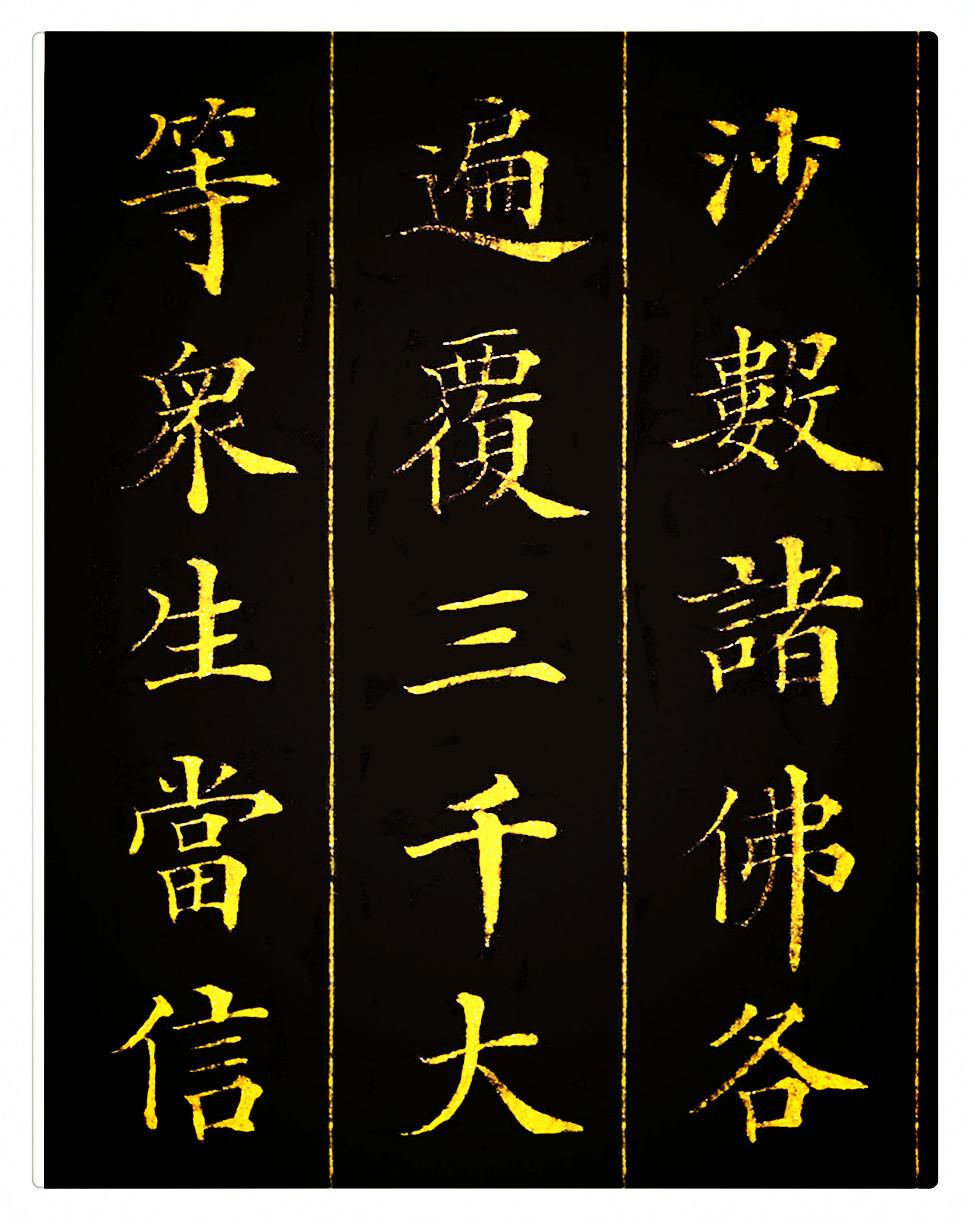 沙數諸佛各
遍覆三千大
等眾生當信